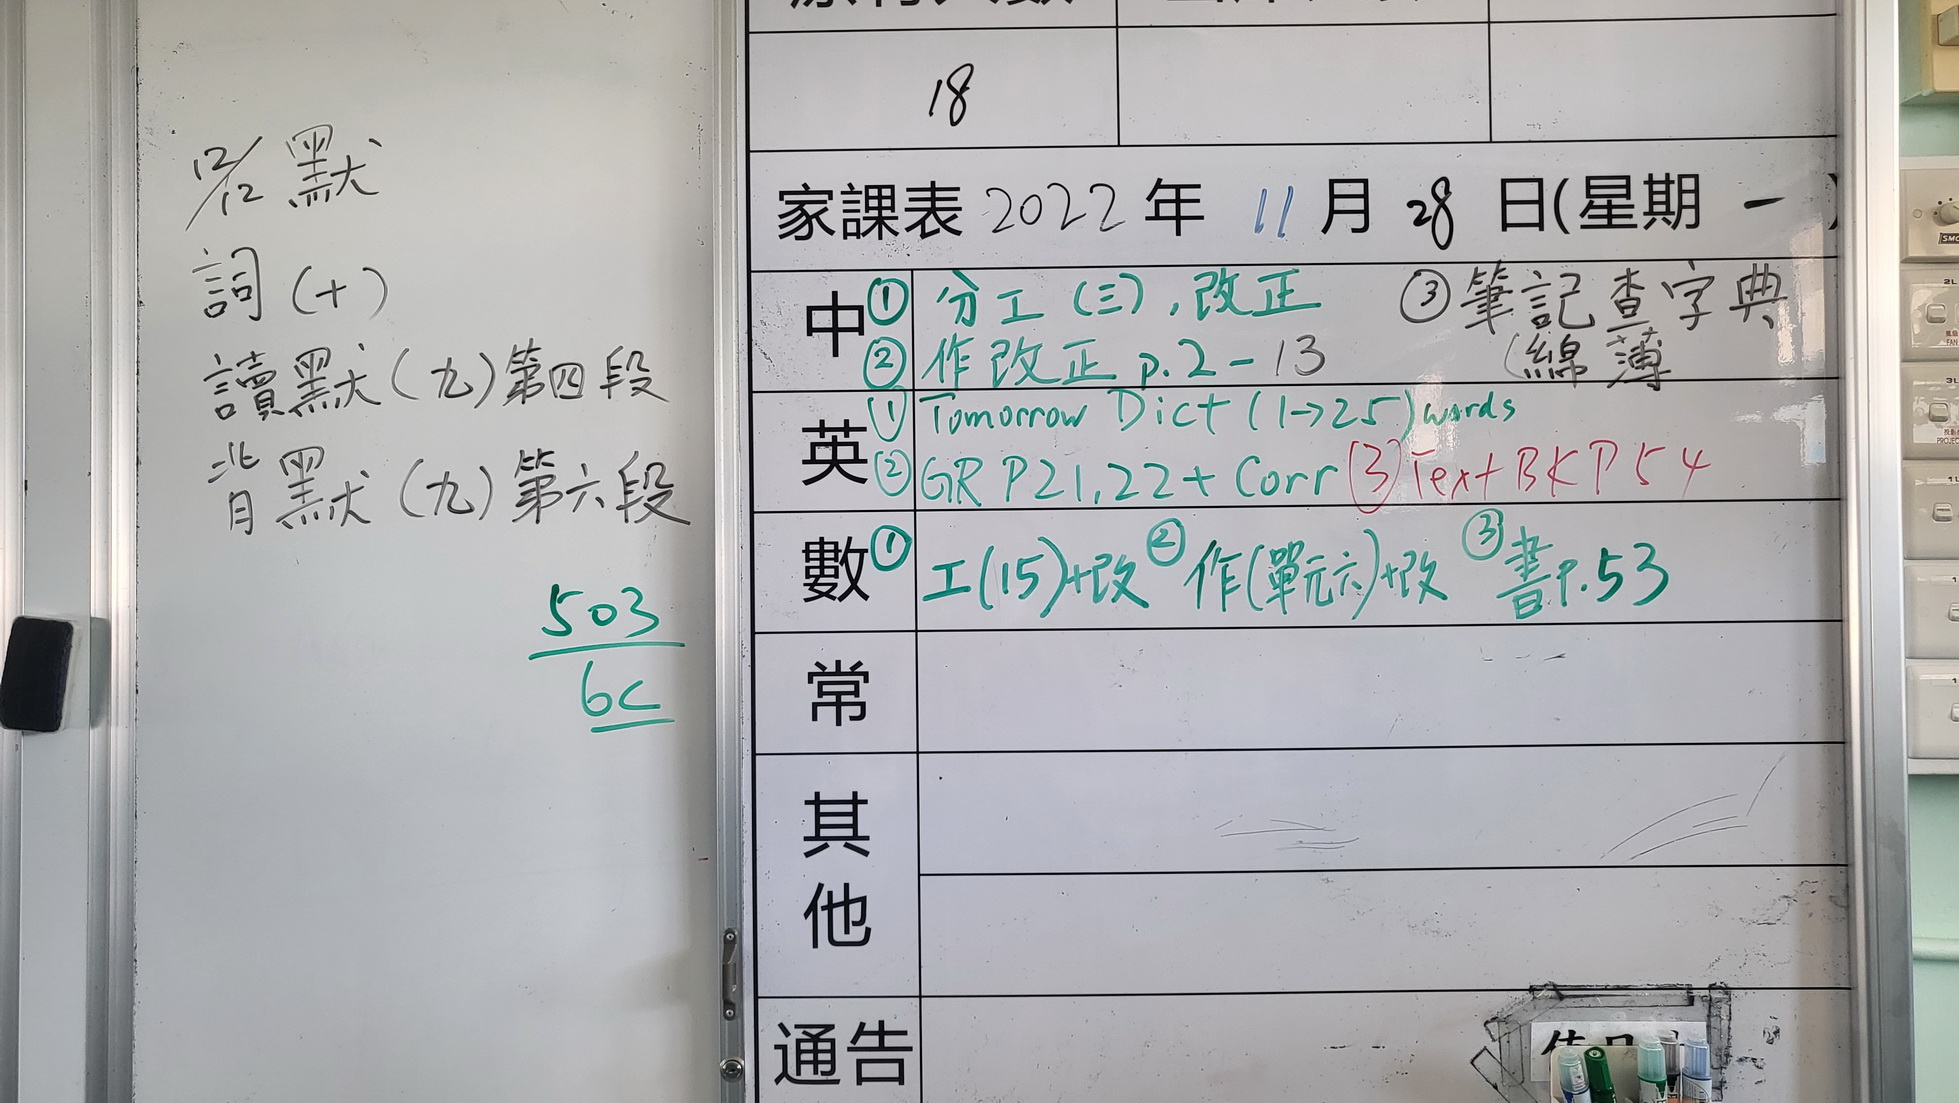 12/12 默
詞(十)
讀默(九)第四段
背默(九)第六段
503
6C
18
家課表 2022 年 11 月 28 日(星期 一 )
中 ① 分工(三),改正 ③ 筆記查字典
② 作改正 p.2-13 (綿薄
英 ① Tomorrow Dict (1→25) words
② GR P21,22 + Corr ③ Text BK P54
數 ① 工(15)+改 ② 作(單元六)+改 ③ 書p.53
常
其
他
通告